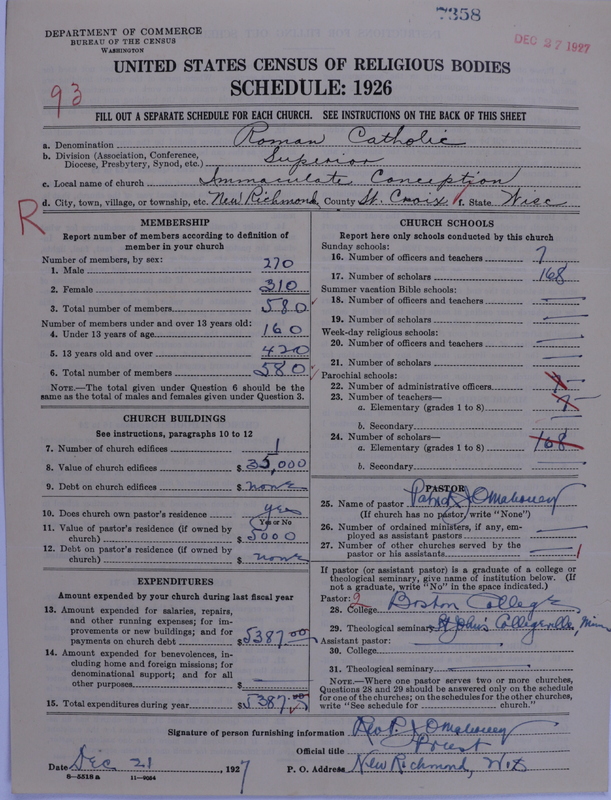 7358
DEPARTMENT OF COMMERCE
BUREAU OF THE CENSUS
WASHINGTON
DEC 27 1927
UNITED STATES CENSUS OF RELIGIOUS BODIES
SCHEDULE: 1926
93
FILL OUT A SEPARATE SCHEDULE FOR EACH CHURCH. SEE INSTRUCTIONS ON THE BACK OF THIS SHEET
a. Denomination Roman Catholic
b. Division (Association, Conference, Diocese, Presbytery, Synod, etc.) Superior
c. Local name of church Immaculate Conception
d. City, town, village, or township, etc. New Richmond, County St. Croix f. State Wisc
R
MEMBERSHIP
Report number of members according to definition of
member in your church
Number of members, by sex:
1. Male 270
2. Female 310
3. Total number of members 580
Number of members under and over 13 years old:
4. Under 13 years of age 160
5. 13 years old and over 420
6. Total number of members 580
NOTE.—The total given under Question 6 should be the
same as the total of males and females given under Question 3.
CHURCH BUILDINGS
See instructions, paragraphs 10 to 12
7. Number of church edifices 1
8. Value of church edifices $ 35,000
9. Debt on church edifices $ none
10. Does church own pastor's residence yes
Yes or No
11. Value of pastor's residence (if owned by
church) $ 5000
12. Debt on pastor's residence (if owned by
church) $ none
EXPENDITURES
Amount expended by your church during last fiscal year
13. Amount expended for salaries, repairs,
and other running expenses; for im-
provements or new buildings; and for
payments on church debt $ 5387.00
14. Amount expended for benevolences, in-
cluding home and foreign missions; for
denominational support; and for all
other purposes $
15. Total expenditures during year $ 5387.00
CHURCH SCHOOLS
Report here only schools conducted by this church
Sunday schools:
16. Number of officers and teachers 7
17. Number of scholars 168
Summer vacation Bible schools:
18. Number of officers and teachers
19. Number of scholars
Week-day religious schools:
20. Number of officers and teachers
21. Number of scholars
Parochial schools:
22. Number of administrative officers
23. Number of teachers—
a. Elementary (grades 1 to 8) 7
b. Secondary
24. Number of scholars—
a. Elementary (grades 1 to 8) 168
b. Secondary
PASTOR
25. Name of pastor Patrick J O'Mahoney
(If church has no pastor, write "None")
26. Number of ordained ministers, if any, em-
ployed as assistant pastors
27. Number of other churches served by the
pastor or his assistants 1
If pastor (or assistant pastor) is a graduate of a college or
theological seminary, give name of institution below. (If
not a graduate, write "No" in the space indicated.)
Pastor: 9
28. College Boston College
29. Theological seminary St John's Collegeville, Minn
Assistant pastor:
30. College
31. Theological seminary
NOTE.—Where one pastor serves two or more churches,
Questions 28 and 29 should be answered only on the schedule
for one of the churches; on the schedules for the other churches,
write "See schedule for church."
Signature of person furnishing information Rev P. J O'Mahoney
Official title Priest
Date Dec 21, 1927 P. O. Address New Richmond, Wis
8—5518 a 11—9064